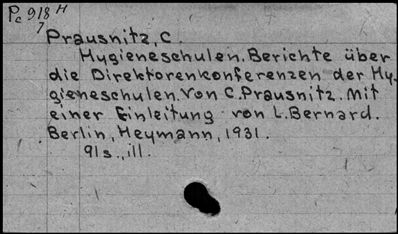 Pc 918 H
7
Prausnitz, C.
Hygieneschulen. Berichte über
die Direktorenkonferenzen der Hy-
gieneschulen. Von C. Prausnitz. Mit
einer Einleitung von L. Bernard.
Berlin, Heymann, 1931.
91s., ill.